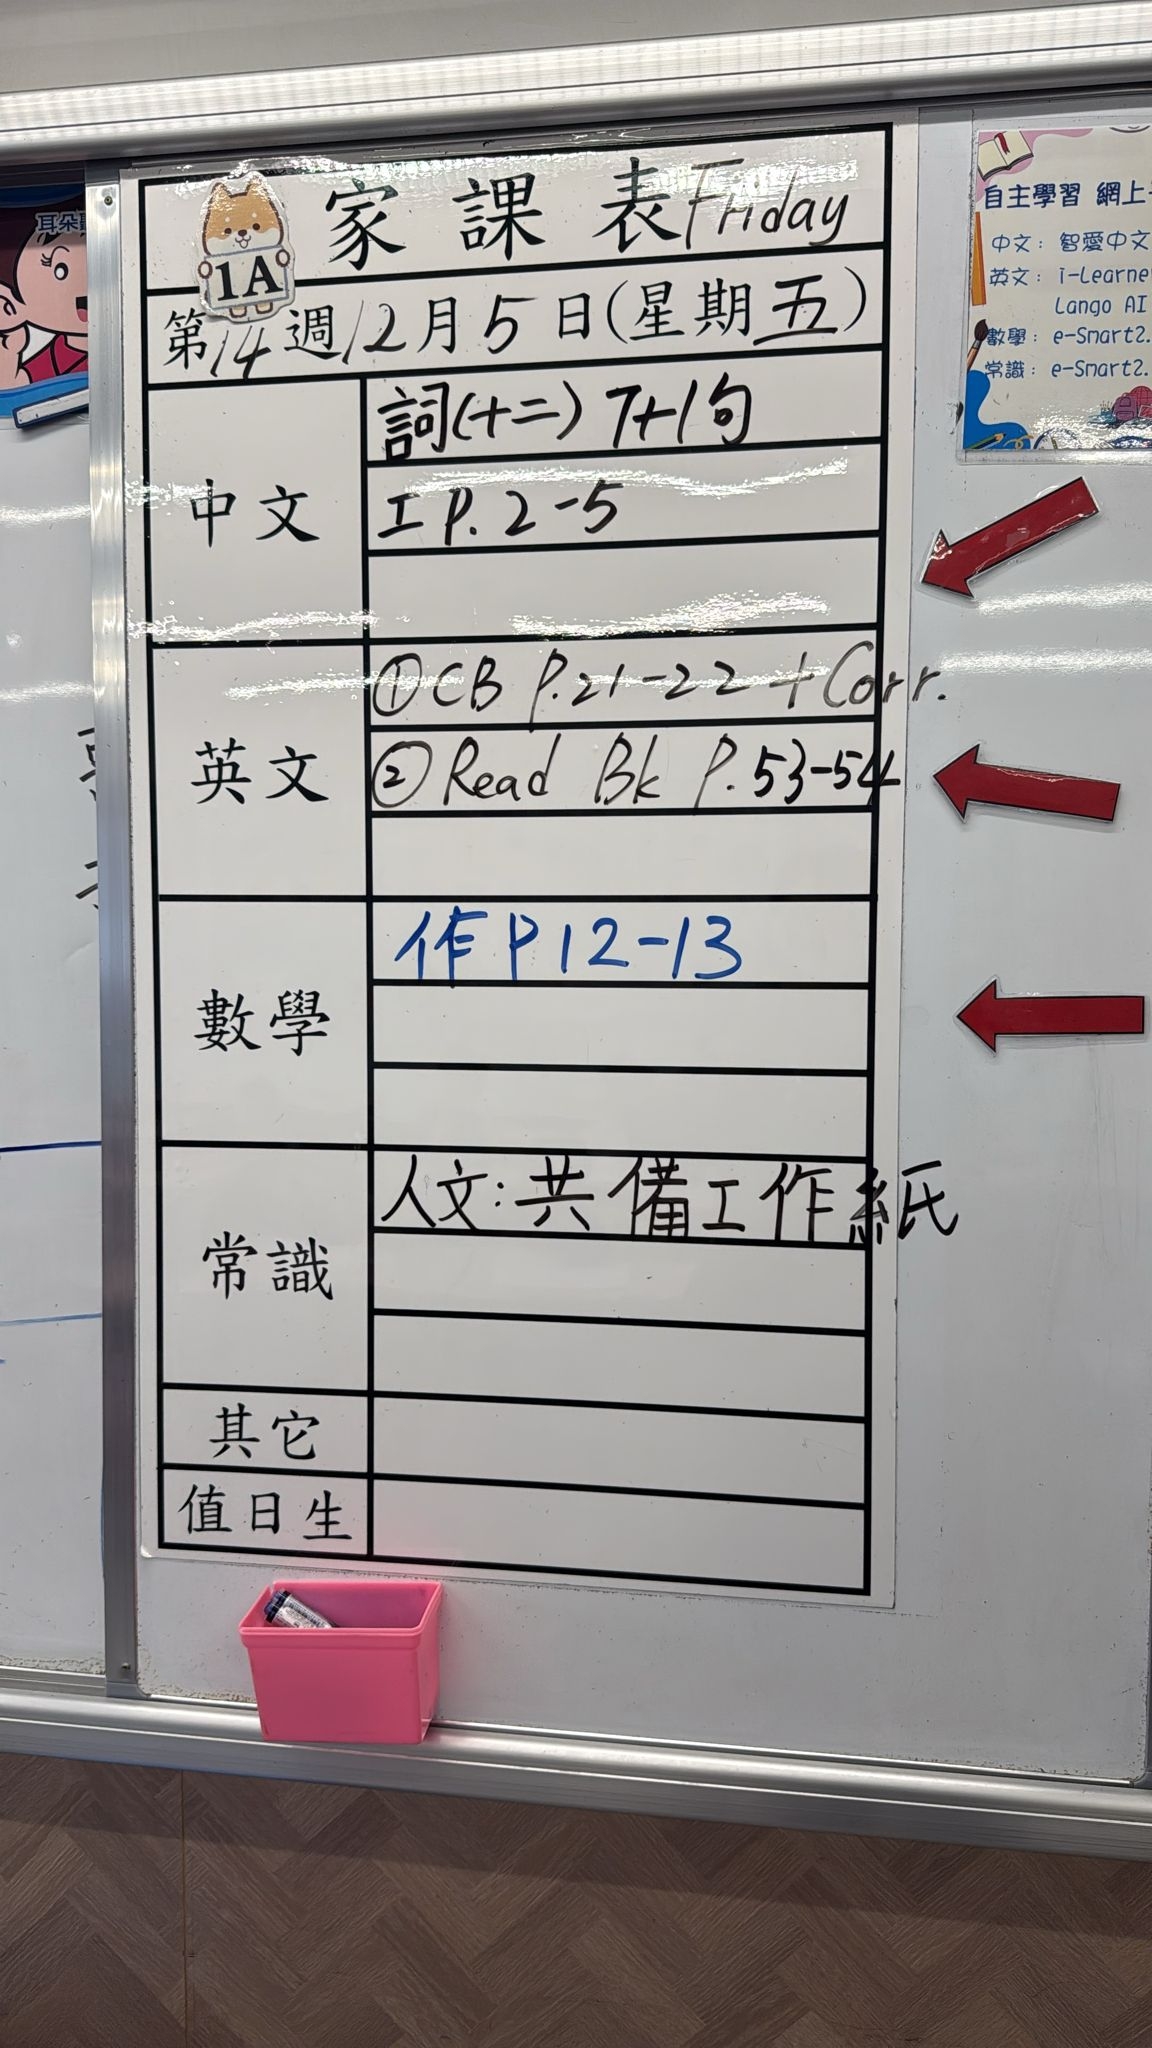 家課表 Friday
1A
第14週12月5日(星期五)
中文
詞(十二) 7+1句
工 P.2-5
英文
①CB P.21-22 + Corr.
②Read Bk P.53-54
數學
作P12-13
常識
人文：共備工作紙
其它
值日生
自主學習 網上
中文：智愛中文
英文：i-Learne
Lango AI
數學：e-Smart2.
常識：e-Smart2.
耳朵